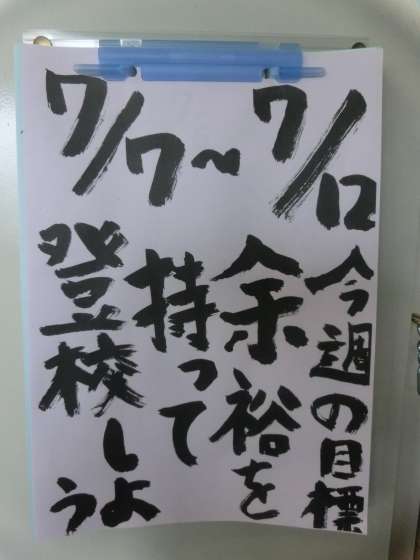 7/7~7/12
今週の目標
余裕を
持って
登校しよう